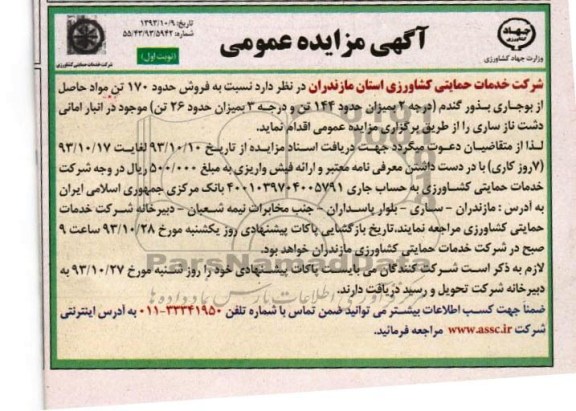 تاریخ: ۱۳۹۳/۱۰/۹
شماره: ۵۵/۴۳/۹۳/۵۹۴۲
(نوبت اول)
آگهی مزایده عمومی
جهاد
وزارت جهاد کشاورزی
شرکت خدمات حمایتی کشاورزی
شرکت خدمات حمایتی کشاورزی استان مازندران در نظر دارد نسبت به فروش حدود ۱۷۰ تن مواد حاصل
از بوجاری بذور گندم (درجه ۲ بمیزان حدود ۱۴۴ تن و درجـه ۳ بمیزان حدود ۲۶ تن) موجود در انبار امانی
دشت ناز ساری را از طریق برگزاری مزایده عمومی اقدام نماید.
لـذا از متقاضیـان دعـوت میگردد جهـت دریافـت اسـناد مزایـده از تاریـخ ۹۳/۱۰/۱۰ لغایـت ۹۳/۱۰/۱۷
(۷روز کاری) با در دست داشتن معرفی نامه معتبر و ارائه فیش واریزی به مبلغ ۵۰۰/۰۰۰ ریال در وجه شرکت
خدمات حمایتی کشـاورزی به حساب جاری ۴۰۰۱۰۳۹۷۰۴۰۰۵۷۹۱ بانک مرکزی جمهوری اسلامی ایران
به آدرس : مازندران - سـاری - بلوار پاسـداران - جنب مخابرات نیمه شـعبان - دبیرخانه شـرکت خدمات
حمایتی کشاورزی مراجعه نمایند.تاریخ بازگشایی پاکات پیشنهادی روز یکشنبه مورخ ۹۳/۱۰/۲۸ ساعت ۹
صبح در شرکت خدمات حمایتی کشاورزی مازندران خواهد بود.
لازم به ذکر اسـت شـرکت کنندگان می بایسـت پاکات پیشـنهادی خود را روز شنبه مورخ ۹۳/۱۰/۲۷ به
دبیرخانه شرکت تحویل و رسید دریافت دارند.
ضمنا جهت کسـب اطلاعات بیشـتر می توانید ضمن تماس با شماره تلفن ۳۳۳۴۱۹۵۰-۰۱۱ به آدرس اینترنتی
شرکت www.assc.ir مراجعه فرمائید.
ParsNamadData